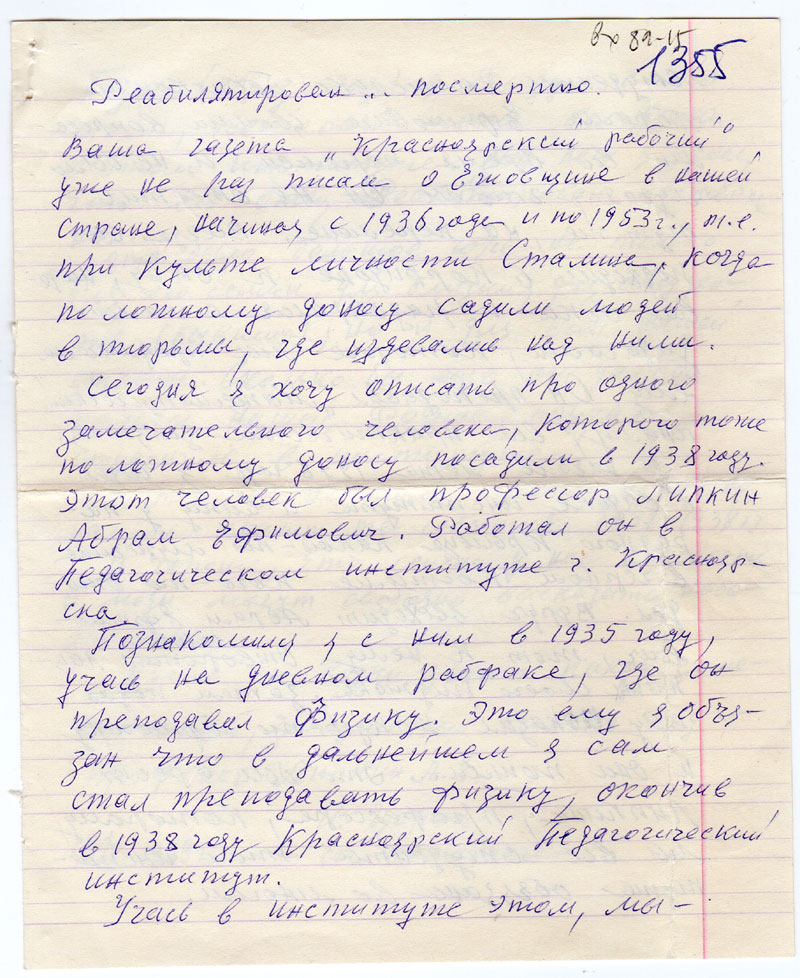 Вх 82-15
1355
Реабилитирован ... посмертно.
Ваша газета „Красноярский рабочий"
уже не раз писала о Ежовщине в нашей
стране, начиная с 1936 года и по 1953 г., т.е.
при культе личности Сталина, когда
по ложному доносу садили людей
в тюрьмы, где издевались над ними.
Сегодня я хочу описать про одного
замечательного человека, которого тоже
по ложному доносу посадили в 1938 году.
Этот человек был профессор Липкин
Абрам Ефимович. Работал он в
Педагогическом институте г. Краснояр-
ска.
Познакомился я с ним в 1935 году,
учась на дневном рабфаке, где он
преподавал Физику. Это ему я обя-
зан что в дальнейшем я сам
стал преподавать физику, окончив
в 1938 году Красноярский Педагогический
институт.
Учась в институте этом, мы –